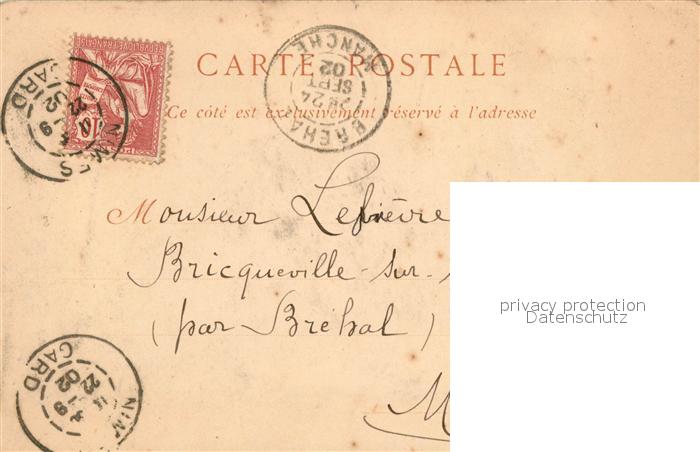 CARTE POSTALE
Ce côté est exclusivement réservé à l'adresse
REPUBLIQUE FRANÇAISE
10
NIMES
GARD
BREHAL
MANCHE
24
SEPT
02
Monsieur Lefièvre
Bricqueville-sur-
(par Bréhal)
M
privacy protection
Datenschutz
NIM
GARD